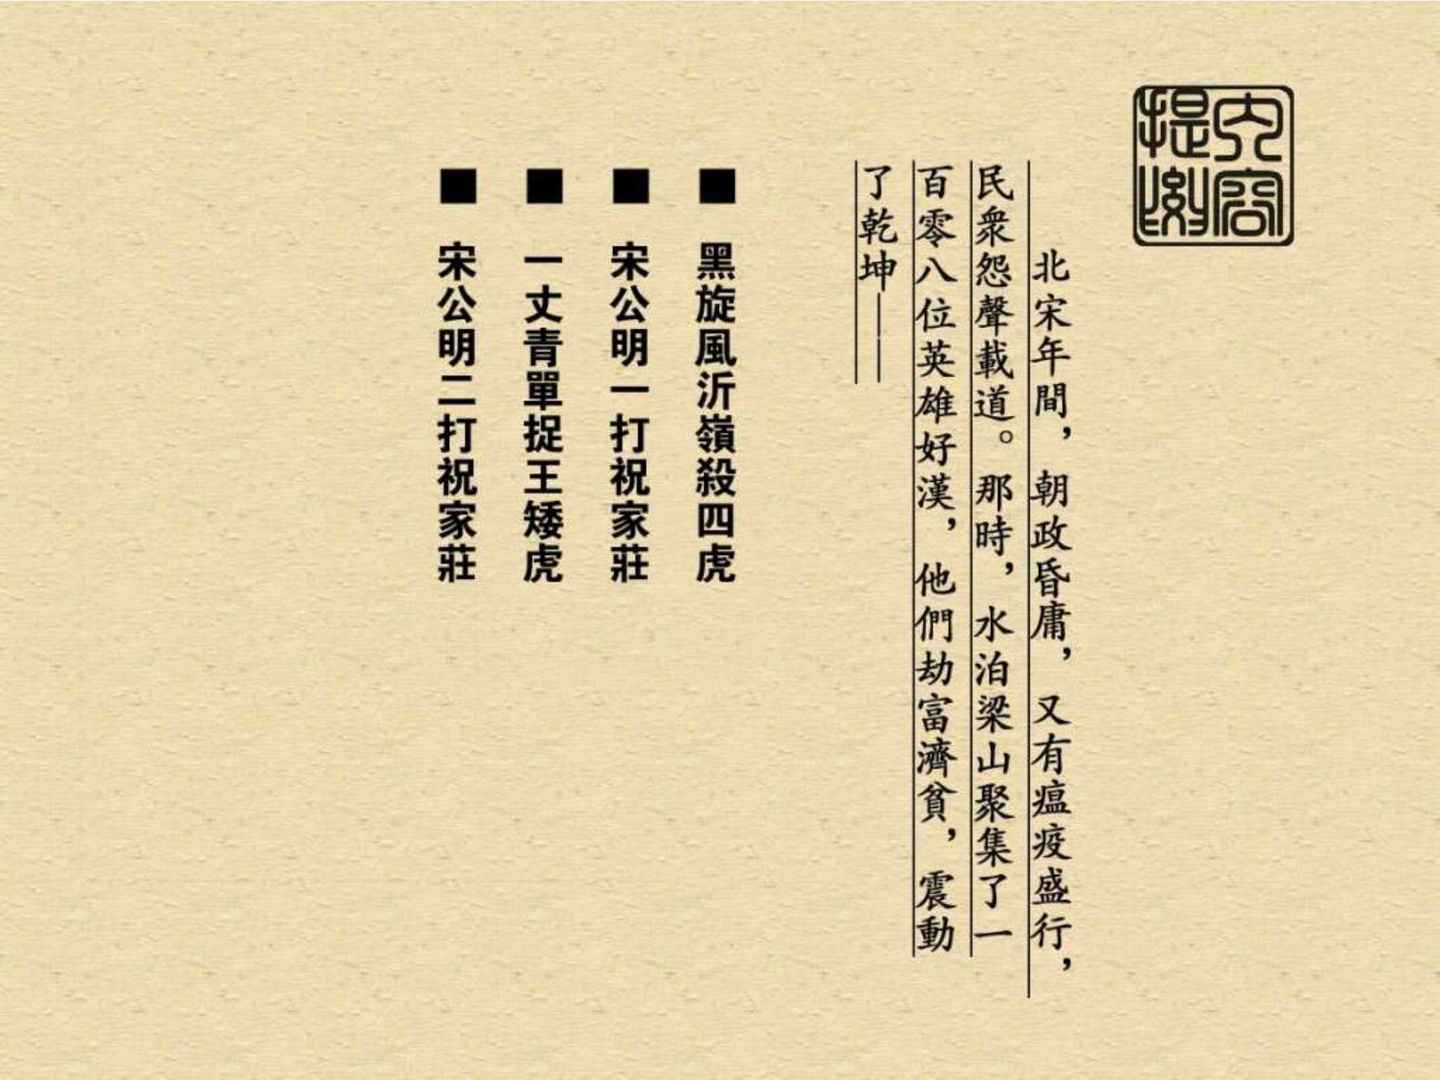 內容提要
北宋年間，朝政昏庸，又有瘟疫盛行，
民衆怨聲載道。那時，水泊梁山聚集了一
百零八位英雄好漢，他們劫富濟貧，震動
了乾坤——
■ 黑旋風沂嶺殺四虎
■ 宋公明一打祝家莊
■ 一丈青單捉王矮虎
■ 宋公明二打祝家莊